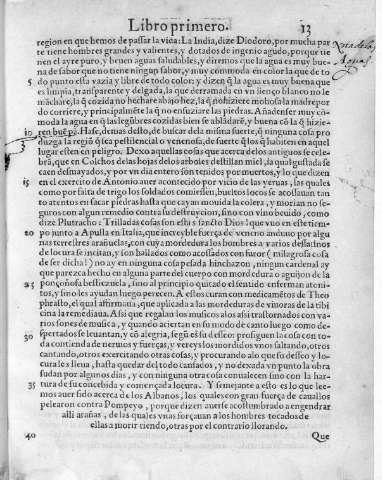 Libro primero. 13
region en que hemos de passar la vida: La India, dize Diodoro, por mucha par
te tiene hombres grandes y valientes, y dotados de ingenio agudo, porque tie
nen el ayre puro, y beuen aguas saludables, y diremos que la agua es muy bue
na de sabor que no tiene ningun sabor, y muy commoda en color la que de to
5 do punto esta vazia y libre de todo color: y dizen q̃ la agua es muy buena que
es limpia, transparente y delgada, la que derramada en vn lienço blanco no le
mãchare, la q̃ cozida no hechare abaxo hez, la q̃ no hiziere mohosa la madre por
do corriere, y principalmẽte la q̃ no ensuziare las piedras. Añadense muy cõ-
moda la agua en q̃ las legũbres cozidas bien se ablãdarẽ, y buena cõ la q̃ hizie
10 ren buẽ pã. Hase, demas desto, de buscar dela misma suerte, q̃ ninguna cosa pro
duzga la regiõ q̃ sea pestilencial o venenosa, de suerte q̃ los q̃ habiten en aquel
lugar esten en peligro. Dexo aquellas cosas que acerca delos antiguos se cele
brã, que en Colchos delas hojas delos arboles destillan miel, la qual gustada se
caen desmayados, y por vn dia entero son tenidos por muertos, y lo que dizen
15 en el exercito de Antonio auer acontecido por vicio de las yeruas, las quales
como por falta de trigo los soldados comiessen, bueltos locos se acostauan tan
to atentos en sacar piedras hasta que cayan mouida la colera, y morian no se-
guros con algun remedio contra la destruycion, sino con vino beuido, como
dize Plutarcho: Trilladas cosas son estas: sancto Dios! que vuo en este tiem-
20 po junto a Apulla en Italia, que increyble fuerça de veneno anduuo por algu
nas terrestres arañuelas, con cuya mordedura los hombres a varios dessatinos
de locura se incitan, y son bailados como acossados con furor (milagrosa cosa
de ser dicha!) no ay en ninguna cosa pesada hinchazon, ningun cardenal ay
que parezca hecho en alguna parte del cuerpo con mordedura o aguijon de la
25 ponçoñosa bestezuela, sino al principio quitado el sentido enferman atoni-
tos, y sino les ayudan luego perecen. A estos curan con medicamẽtos de Theo
phrasto, el qual affirmaua, que aplicada a las mordeduras de viuoras de la tibi
cina la remediaua. Assi que regalan los musicos alos assi trastornados con va
rios sones de musica, y quando aciertan en su modo de canto luego como des-
30 pertados se leuantan, y cõ alegria, segũ es su desseo prosiguen la cosa con to
da contienda de neruios y fuerças, y vereys los mordidos vnos saltando, otros
cantando, otros exercitando otras cosas, y procurando alo que su desseo y lo-
cura los lleua, hasta quedar del todo cansados, y no dexan vn punto la obra
sudan por algunos dias, y con ninguna otra cosa conualecen sino con la har-
35 tura de su concebida y començada locura. Y semejante a esto es lo que lee-
mos auer sido acerca de los Albanos, los quales con gran fuerça de cauallos
pelearon contra Pompeyo, porque dizen auerse acostumbrado a engendrar
alli arañas, de las quales vnas forçauan a los hombres tocados de
ellas a morir riendo, otras por el contrario llorando.
40 Que